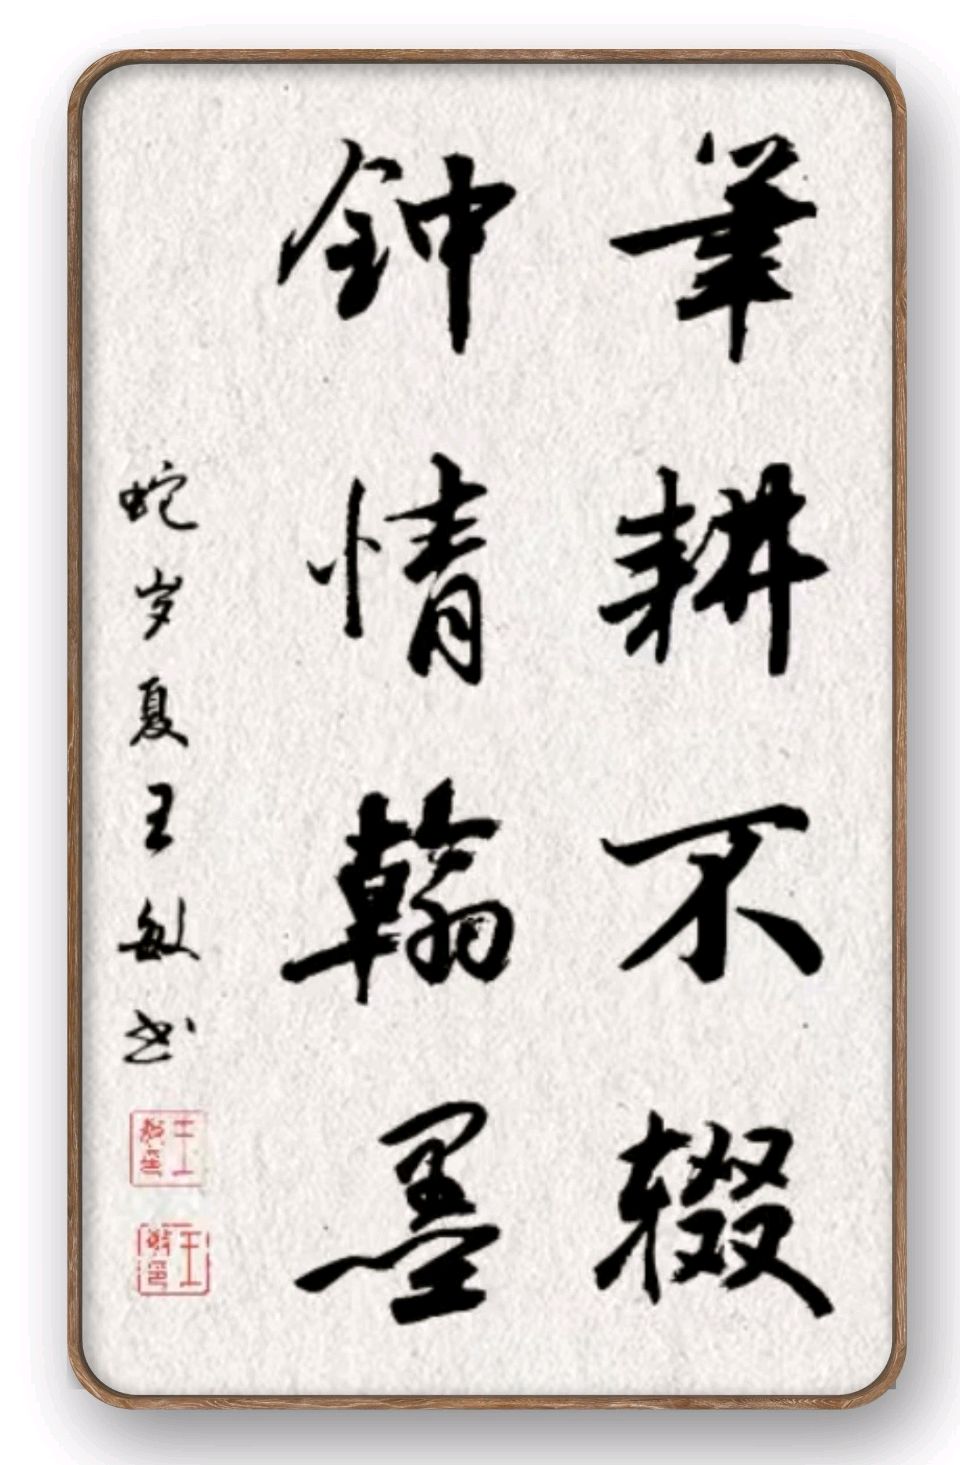 筆耕不辍
钟情翰墨
蛇岁夏王敏书